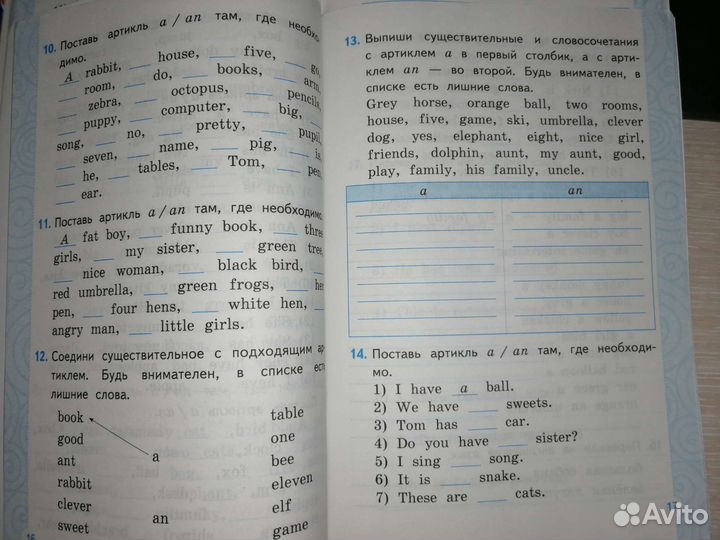 10. Поставь артикль a / an там, где необхо-
димо.
A rabbit, __ house, __ five, __ go,
__ room, __ do, __ books, __ arm,
__ zebra, __ octopus, __ pencils,
__ puppy, __ computer, __ big, __
song, __ no, __ pretty, __ pupil,
__ seven, __ name, __ pig, __ is,
__ he, __ tables, __ Tom, __ pen,
__ ear.
11. Поставь артикль a / an там, где необходимо.
A fat boy, __ funny book, __ three
girls, __ my sister, __ green tree,
__ nice woman, __ black bird, __
red umbrella, __ green frogs, __ her
pen, __ four hens, __ white hen, __
angry man, __ little girls.
12. Соедини существительное с подходящим ар-
тиклем. Будь внимателен, в списке есть
лишние слова.
book table
good one
ant a bee
rabbit eleven
clever an elf
sweet game
16
13. Выпиши существительные и словосочетания
с артиклем a в первый столбик, а с арти-
клем an — во второй. Будь внимателен, в
списке есть лишние слова.
Grey horse, orange ball, two rooms,
house, five, game, ski, umbrella, clever
dog, yes, elephant, eight, nice girl,
friends, dolphin, aunt, my aunt, good,
play, family, his family, uncle.
a an
14. Поставь артикль a / an там, где необходи-
мо.
1) I have a ball.
2) We have __ sweets.
3) Tom has __ car.
4) Do you have __ sister?
5) I sing __ song.
6) It is __ snake.
7) These are __ cats.
17
Avito